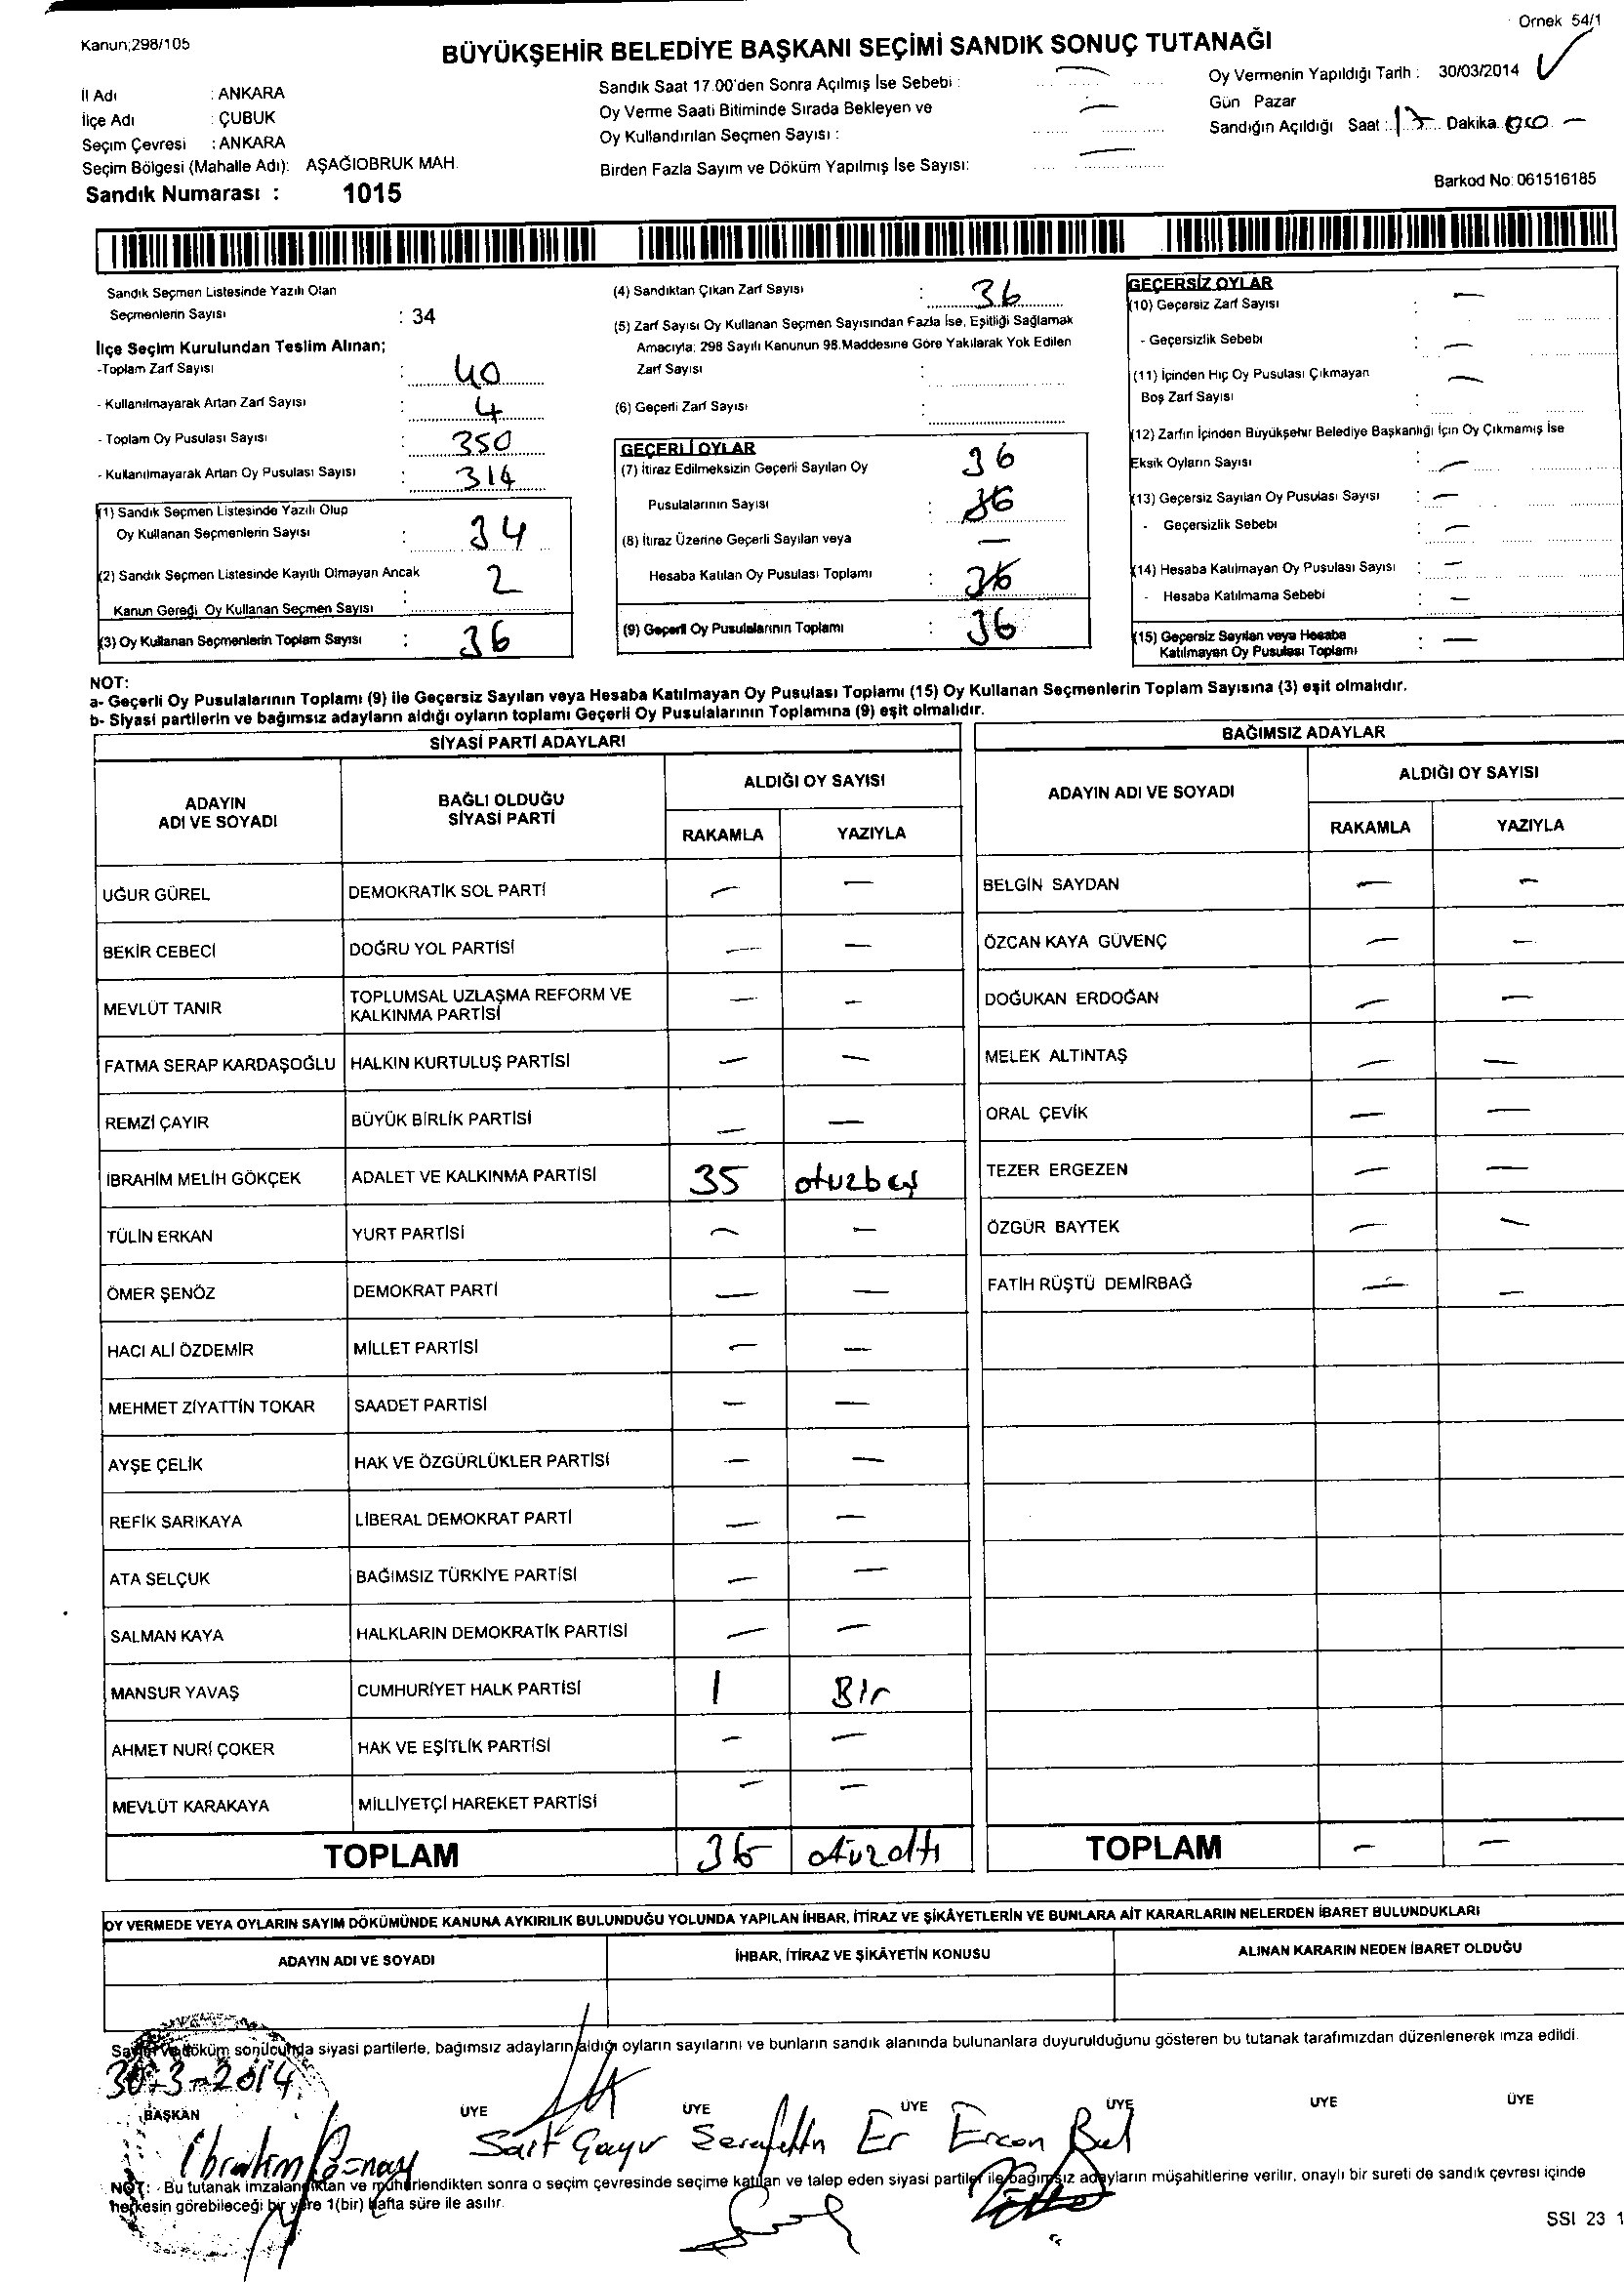 Örnek 54/1
Kanun;298/105
BÜYÜKŞEHİR BELEDİYE BAŞKANI SEÇİMİ SANDIK SONUÇ TUTANAĞI
İl Adı : ANKARA
İlçe Adı : ÇUBUK
Seçim Çevresi : ANKARA
Seçim Bölgesi (Mahalle Adı): AŞAĞIOBRUK MAH.
Sandık Numarası : 1015
Sandık Saat 17.00'den Sonra Açılmış İse Sebebi : —
Oy Verme Saati Bitiminde Sırada Bekleyen ve
Oy Kullandırılan Seçmen Sayısı : —
Birden Fazla Sayım ve Döküm Yapılmış İse Sayısı: —
Oy Vermenin Yapıldığı Tarih : 30/03/2014
Gün Pazar
Sandığın Açıldığı Saat : 17 Dakika 00 —
Barkod No: 061516185
Sandık Seçmen Listesinde Yazılı Olan
Seçmenlerin Sayısı : 34
İlçe Seçim Kurulundan Teslim Alınan;
-Toplam Zarf Sayısı : 40
- Kullanılmayarak Artan Zarf Sayısı : 4
- Toplam Oy Pusulası Sayısı : 350
- Kullanılmayarak Artan Oy Pusulası Sayısı : 314
(1) Sandık Seçmen Listesinde Yazılı Olup
Oy Kullanan Seçmenlerin Sayısı : 34
(2) Sandık Seçmen Listesinde Kayıtlı Olmayan Ancak
Kanun Gereği Oy Kullanan Seçmen Sayısı : 2
(3) Oy Kullanan Seçmenlerin Toplam Sayısı : 36
(4) Sandıktan Çıkan Zarf Sayısı : 36
(5) Zarf Sayısı Oy Kullanan Seçmen Sayısından Fazla İse, Eşitliği Sağlamak
Amacıyla; 298 Sayılı Kanunun 98.Maddesine Göre Yakılarak Yok Edilen
Zarf Sayısı :
(6) Geçerli Zarf Sayısı :
GEÇERLİ OYLAR
(7) İtiraz Edilmeksizin Geçerli Sayılan Oy 36
Pusulalarının Sayısı : 36
(8) İtiraz Üzerine Geçerli Sayılan veya —
Hesaba Katılan Oy Pusulası Toplamı : 36
(9) Geçerli Oy Pusulalarının Toplamı : 36
GEÇERSİZ OYLAR
(10) Geçersiz Zarf Sayısı : —
- Geçersizlik Sebebi : —
(11) İçinden Hiç Oy Pusulası Çıkmayan
Boş Zarf Sayısı : —
(12) Zarfın İçinden Büyükşehir Belediye Başkanlığı İçin Oy Çıkmamış İse
Eksik Oyların Sayısı : —
(13) Geçersiz Sayılan Oy Pusulası Sayısı : —
- Geçersizlik Sebebi : —
(14) Hesaba Katılmayan Oy Pusulası Sayısı : —
- Hesaba Katılmama Sebebi : —
(15) Geçersiz Sayılan veya Hesaba
Katılmayan Oy Pusulası Toplamı : —
NOT:
a- Geçerli Oy Pusulalarının Toplamı (9) ile Geçersiz Sayılan veya Hesaba Katılmayan Oy Pusulası Toplamı (15) Oy Kullanan Seçmenlerin Toplam Sayısına (3) eşit olmalıdır.
b- Siyasi partilerin ve bağımsız adayların aldığı oyların toplamı Geçerli Oy Pusulalarının Toplamına (9) eşit olmalıdır.
SİYASİ PARTİ ADAYLARI
ADAYIN ADI VE SOYADI BAĞLI OLDUĞU SİYASİ PARTİ ALDIĞI OY SAYISI
RAKAMLA YAZIYLA
UĞUR GÜREL DEMOKRATİK SOL PARTİ — —
BEKİR CEBECİ DOĞRU YOL PARTİSİ — —
MEVLÜT TANIR TOPLUMSAL UZLAŞMA REFORM VE KALKINMA PARTİSİ — —
FATMA SERAP KARDAŞOĞLU HALKIN KURTULUŞ PARTİSİ — —
REMZİ ÇAYIR BÜYÜK BİRLİK PARTİSİ — —
İBRAHİM MELİH GÖKÇEK ADALET VE KALKINMA PARTİSİ 35 otuzbeş
TÜLİN ERKAN YURT PARTİSİ — —
ÖMER ŞENÖZ DEMOKRAT PARTİ — —
HACI ALİ ÖZDEMİR MİLLET PARTİSİ — —
MEHMET ZİYATTİN TOKAR SAADET PARTİSİ — —
AYŞE ÇELİK HAK VE ÖZGÜRLÜKLER PARTİSİ — —
REFİK SARIKAYA LİBERAL DEMOKRAT PARTİ — —
ATA SELÇUK BAĞIMSIZ TÜRKİYE PARTİSİ — —
SALMAN KAYA HALKLARIN DEMOKRATİK PARTİSİ — —
MANSUR YAVAŞ CUMHURİYET HALK PARTİSİ 1 Bir
AHMET NURİ ÇOKER HAK VE EŞİTLİK PARTİSİ — —
MEVLÜT KARAKAYA MİLLİYETÇİ HAREKET PARTİSİ — —
TOPLAM 36 otuzaltı
BAĞIMSIZ ADAYLAR
ADAYIN ADI VE SOYADI ALDIĞI OY SAYISI
RAKAMLA YAZIYLA
BELGİN SAYDAN — —
ÖZCAN KAYA GÜVENÇ — —
DOĞUKAN ERDOĞAN — —
MELEK ALTINTAŞ — —
ORAL ÇEVİK — —
TEZER ERGEZEN — —
ÖZGÜR BAYTEK — —
FATİH RÜŞTÜ DEMİRBAĞ — —
TOPLAM — —
OY VERMEDE VEYA OYLARIN SAYIM DÖKÜMÜNDE KANUNA AYKIRILIK BULUNDUĞU YOLUNDA YAPILAN İHBAR, İTİRAZ VE ŞİKÂYETLERİN VE BUNLARA AİT KARARLARIN NELERDEN İBARET BULUNDUKLARI
ADAYIN ADI VE SOYADI İHBAR, İTİRAZ VE ŞİKÂYETİN KONUSU ALINAN KARARIN NEDEN İBARET OLDUĞU
Sayım ve döküm sonucunda siyasi partilerle, bağımsız adayların aldığı oyların sayılarını ve bunların sandık alanında bulunanlara duyurulduğunu gösteren bu tutanak tarafımızdan düzenlenerek imza edildi.
30-3-2014
BAŞKAN ÜYE ÜYE ÜYE ÜYE ÜYE ÜYE
İbrahim Sait Er Ercan
NOT: - Bu tutanak imzalandıktan ve mühürlendikten sonra o seçim çevresinde seçime katılan ve talep eden siyasi partiler ile bağımsız adayların müşahitlerine verilir, onaylı bir sureti de sandık çevresi içinde
herkesin görebileceği bir yere 1(bir) hafta süre ile asılır.
SSI 23 1